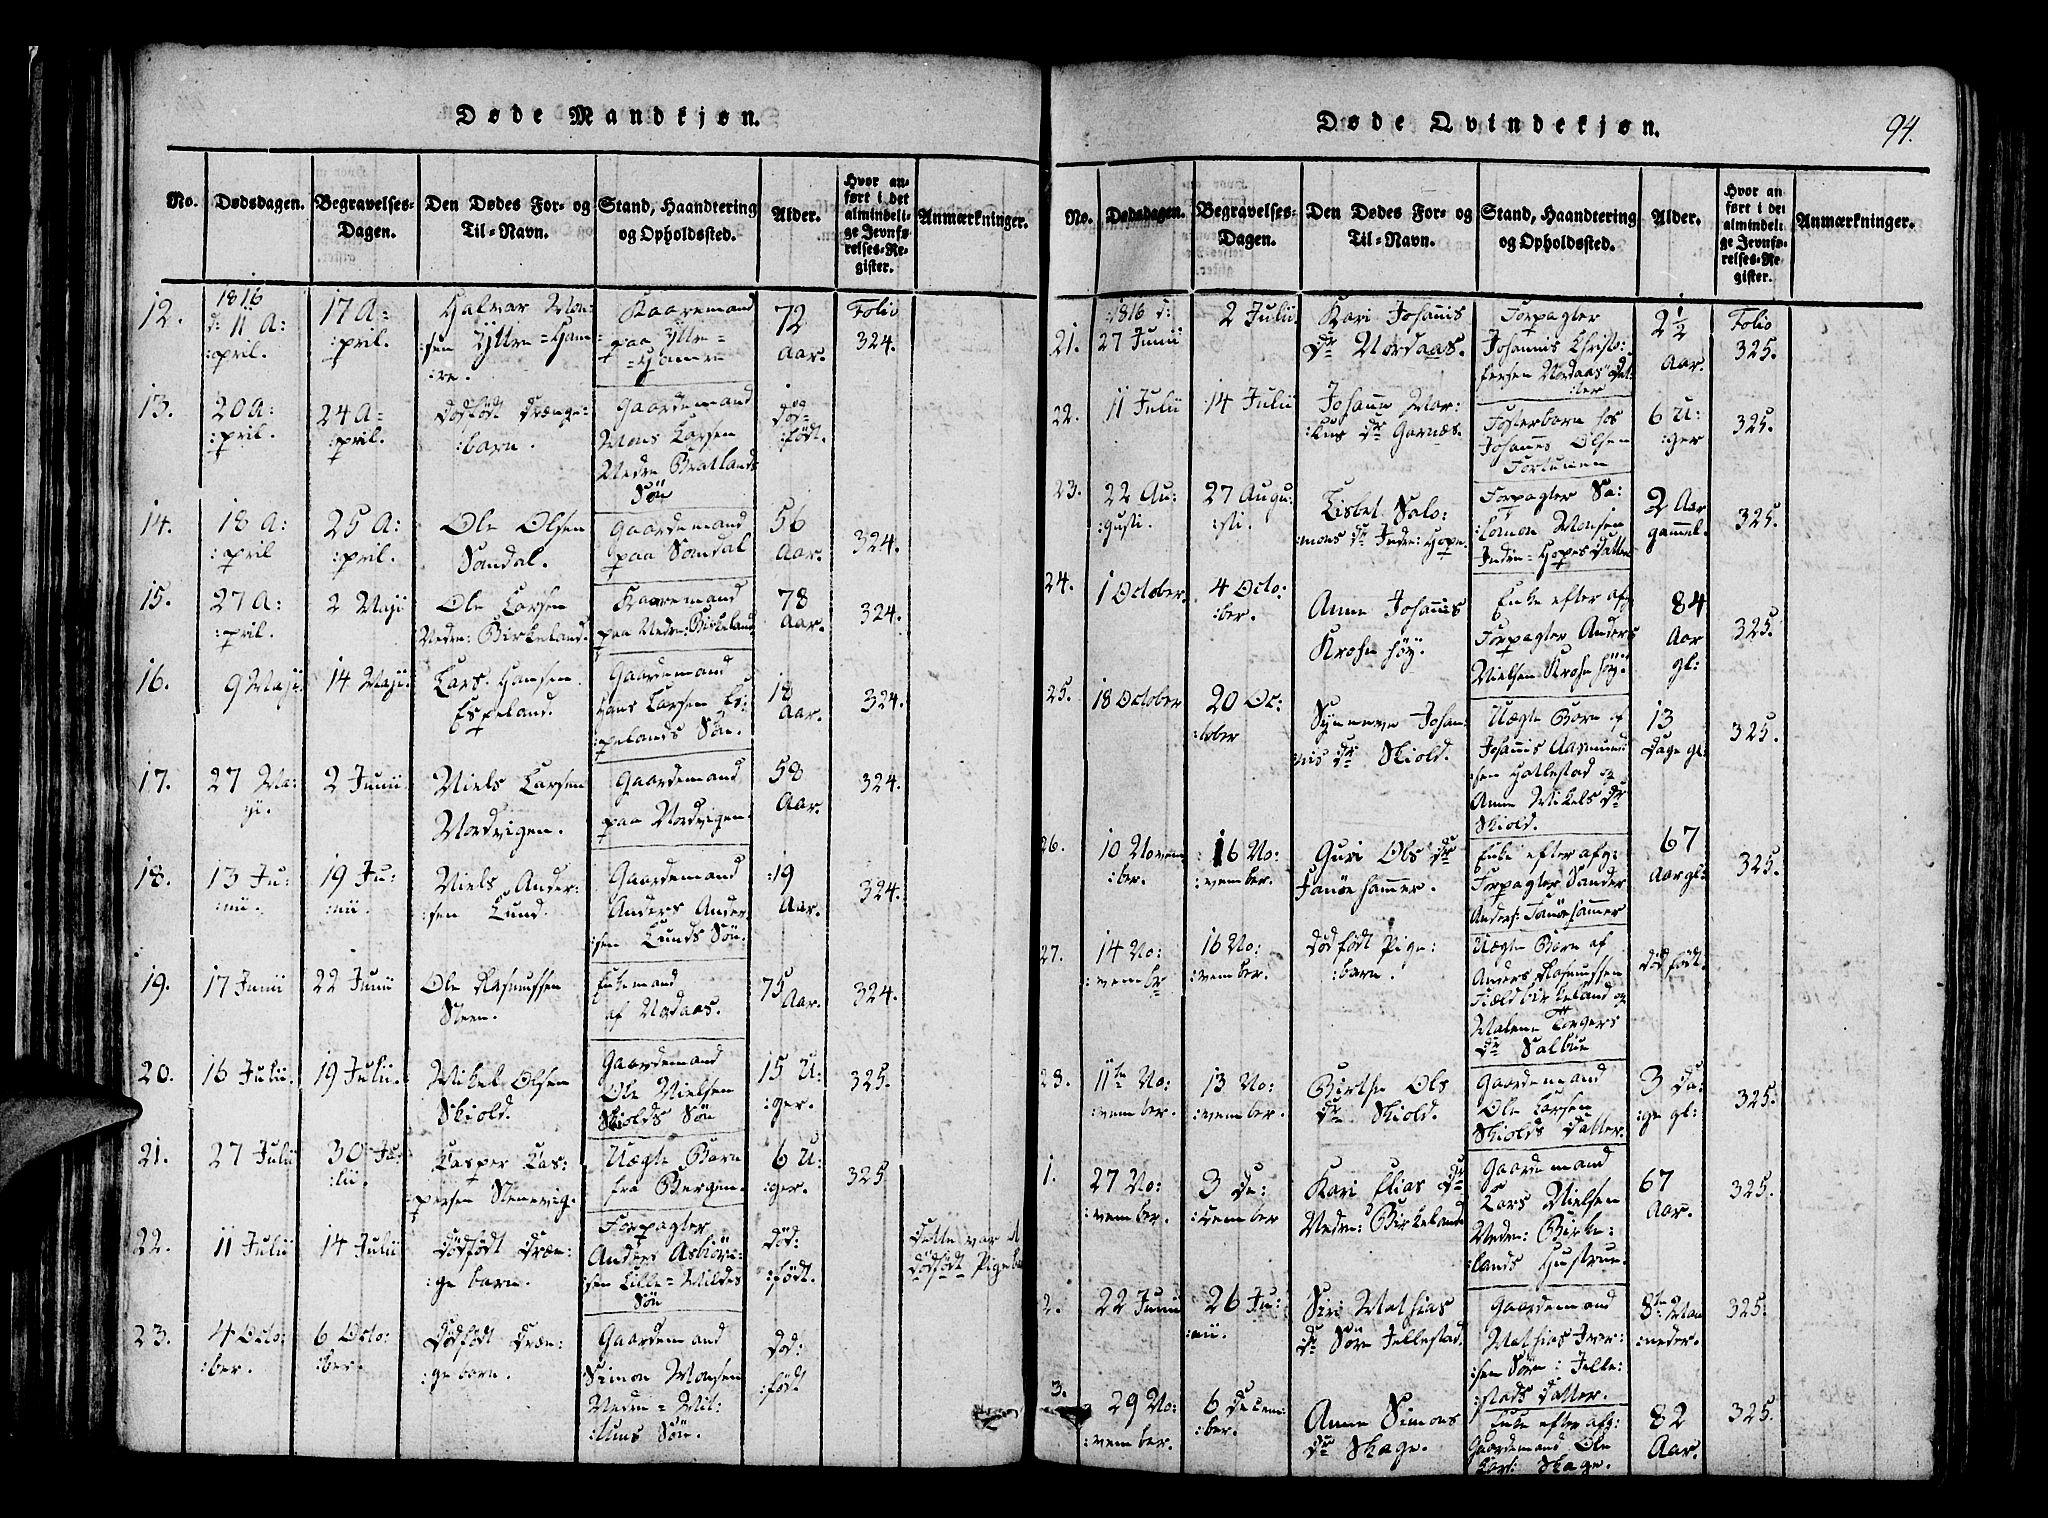 Døde Mandkjøn.
No.
Dødsdagen.
Begravelses-
Dagen.
Den Dødes For- og
Til-Navn.
Stand, Haandtering
og Opholdssted.
Alder.
Hvor an-
ført i det
almindeli-
ge Jevnfø-
relses-Re-
gister.
Anmærkninger.
12.
1816
d: 11 A:
:pril.
17 A:
:pril.
Halvor Mon:
:sen Yttre=Ham:
:re.
Kaaremand
paa Yttre=
=Hamre
72
Aar.
Folio
324.
13.
20 A:
:pril.
24 A:
:pril.
Dødfødt Drænge:
:barn.
Gaardemand
Mons Larsen
Nedre Bratlands
Søn
død:
:født.
14.
18 A:
:pril
25 A:
:pril.
Ole Olsen
Samdal.
Gaardemand
paa Samdal
56
Aar.
324.
15.
27 A:
:pril.
2 Maji
Ole Larsen
Neden: Birkeland.
Kaaremand
paa Neden: Birkeland.
78
Aar.
324.
16.
9 Maji.
14 Maji.
Lars Hansen
Espeland.
Gaardemand
Hans Larsen Es:
:pelands Søn.
18
Aar.
324.
17.
27 Ma:
:ji.
2 Junii
Niels Larsen
Nordvigen.
Gaardemand
paa Nordvigen.
58
Aar.
324.
18.
13 Ju:
:nii.
19 Ju:
:nii.
Niels Ander:
:sen Lund.
Gaardemand
Anders Ander
:sen Lunds Søn.
19
Aar.
324.
19.
17 Junii
22 Junii
Ole Rasmussen
Steen.
Enkemand
af Nordaas.
75
Aar.
324.
20.
16 Julii.
19 Julii.
Mikel Olsen
Skiold.
Gaardemand
Ole Nielsen
Skiolds Søn
15 U:
:ger.
325.
21.
27 Julii
30 Ju:
:lii.
Casper Cas:
:persen Stenevig.
Uægte Barn
fra Bergen.
6 U:
:ger.
325
22.
11 Julii
14 Julii
Dødfødt Dræn:
:ge barn.
Forpagter
Anders Asbiørn:
:sen Lille=Mildes
Søn
død:
:født.
Dette var et
dødfødt Pigeba
23.
4 Octo:
:ber.
6 Octo:
:ber.
Dødfødt Dræn:
:ge barn.
Gaardemand
Simon Monsen
Nedre=Mil:
Søn.
død:
:født
Døde Qvindekjøn.
94.
No.
Dødsdagen.
Begravelses-
Dagen.
Den Dødes For- og
Til-Navn.
Stand, Haandtering
og Opholdssted.
Alder.
Hvor an
ført i det
almindeli
ge Jevnfø-
relses-Re
gister.
Anmærkninger.
21.
:1816 d:
27 Junii
2 Julii.
Kari Johannis
Dr Nordaas.
Forpagter
Johannis Christo:
:fersen Nordaas Dat:
:ter
2 1/2
Aar.
Folio
325.
22.
11 Julii
14 Julii
Johanne Mar:
:kus Dr Garnæs.
Fosterbarn hos
Johannes Olsen
Fortunen
6 U:
:ger
325.
23.
22 Au:
:gusti.
27 Augu:
:sti.
Lisbet Salo:
:mons Dr Inden: Hope.
Forpagter Sa:
:lamon Monsen
Inden=Hopes Datter
2 Aar
gammel.
325.
24.
1 October.
4 Octo:
:ber.
Anne Johannis
Krohnhøy.
Enke efter afg:
Forpagter Anders
Nielsen Krohnhøy.
84
Aar
gl:
325.
25.
18 October
20 Oc:
:tober
Synneve Johan:
:nis Dr Skiold.
Uægte Barn af
Johannis Aasmund:
:sen Hatlestad og
Anne Mikels Dr
Skiold.
13
Dage gl:
325.
26.
10 Novem
:ber.
16 No:
:vember.
Guri Ols Dr
Fanøe hammer.
Enke efter afg:
Forpagter Sander
Anders: Fanøe hammer
67
Aar gl:
325.
27.
14 No:
:vembr
16 No:
:vember.
Dødfødt Pige:
:barn.
Uægte Barn af
Anders Rasmussen
Fieldbirkeland og
Malene Torgers
Dr Salbue
Dødfødt.
28.
11te No:
:vember.
13 No:
:vember.
Birthe Ols
Dr Skiold.
Gaardemand
Ole Larsen
Skiolds Datter.
3 Da:
:ge gl:
325.
1.
27 No:
:vember.
3 De:
:cember
Kari Elias Dr
Neden: Birkeland
Gaardemand
Lars Nielsen
Neden: Birke:
:lands Hustrue.
67
Aar.
325.
2.
22 Junii
26 Ju:
:nii.
Siri Mathias
Dr Søre Jellestad.
Gaardemand
Mathias Iver:
:sen Søre: Jelle:
:stads Datter.
8te Maa
:neder.
325.
3.
29 No:
:vember.
6 Decem:
:ber.
Anne Simons
Dr Skage.
Enke efter afg:
Gaardemand Ole
Lars: Skage.
82
Aar.
325.